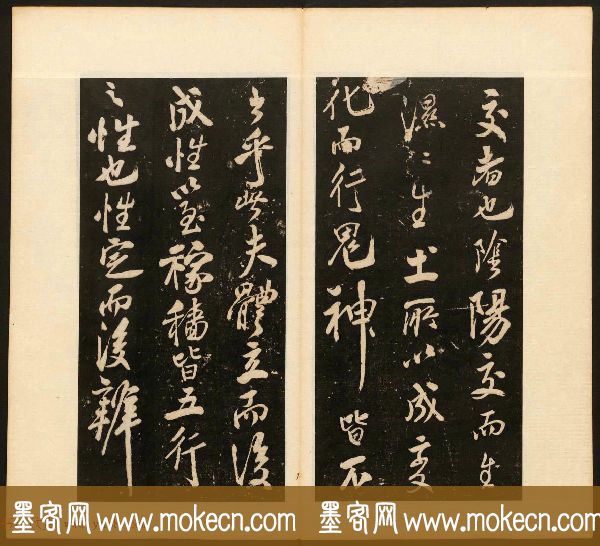 交者也陰陽交而生
濕〻生土所以成變
化而行鬼神皆不
出乎此夫體立而後
成性以至稼穡皆五行
之性也性定而後辨
墨客网 www.mokecn.com 墨客网 www.mokecn.com